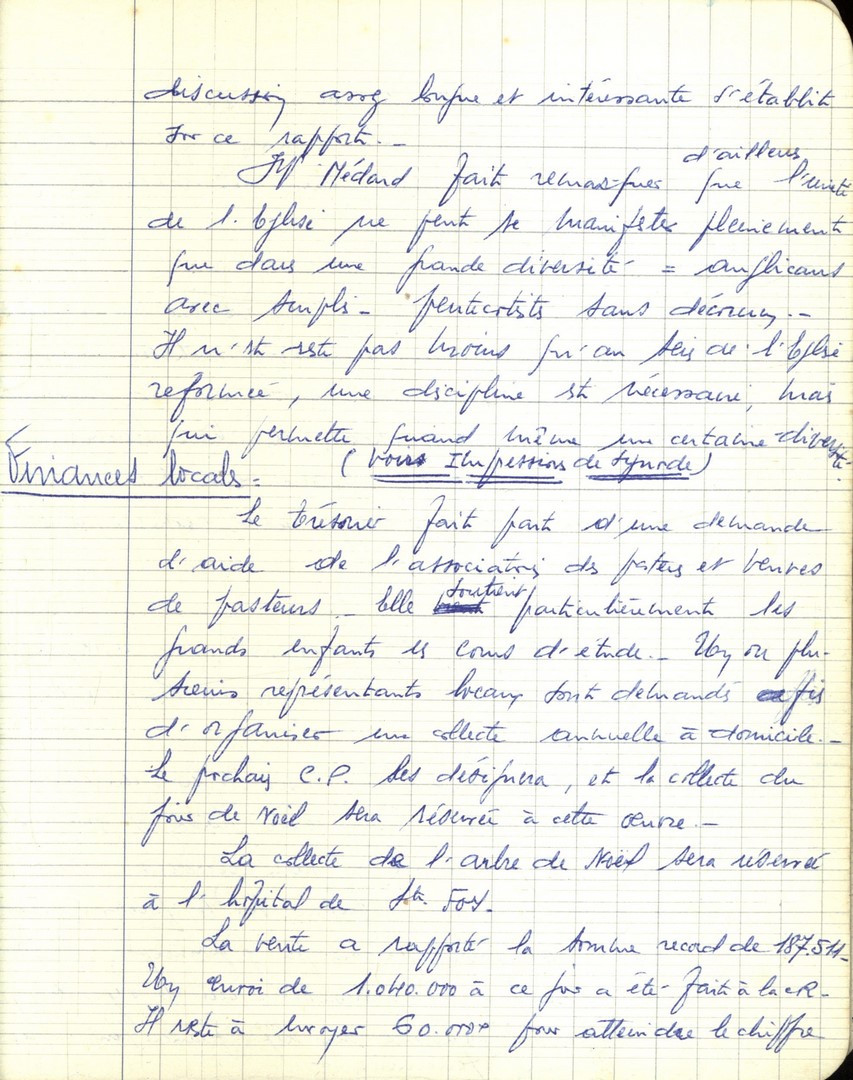 discussion assez longue et intéressante s'établit
sur ce rapport. _
d'ailleurs
Mr Médard fait remarquer que l'unité
de l'Eglise ne peut se manifester pleinement
que dans une grande diversité = anglicans
avec surplis _ pentecotists sans décorum. _
Il n'en reste pas moins qu'au sein de l'Eglise
reformée, une discipline est nécessaire, mais
qui permette quand même une certaine diversité.
(voir Impressions de Synode)
Finances locales =
Le trésorier fait part d'une demande
d'aide de l'association des pasteurs et veuves
de pasteurs _ Elle soutient particulièrement les
grands enfants en cours d'étude. _ Un ou plu-
sieurs représentants locaux sont demandés afin
d'organiser une collecte annuelle à domicile. _
Le prochain C.P. les désignera, et la collecte du
jour de Noël sera réservée à cette œuvre. _
La collecte de l'arbre de Noël sera réservée
à l'hôpital de Ste. Foy.
La vente a rapporté la somme record de 187.511_
Un envoi de 1.040.000 à ce jour a été fait à la cR_
Il reste à envoyer 60.000F pour atteindre le chiffre